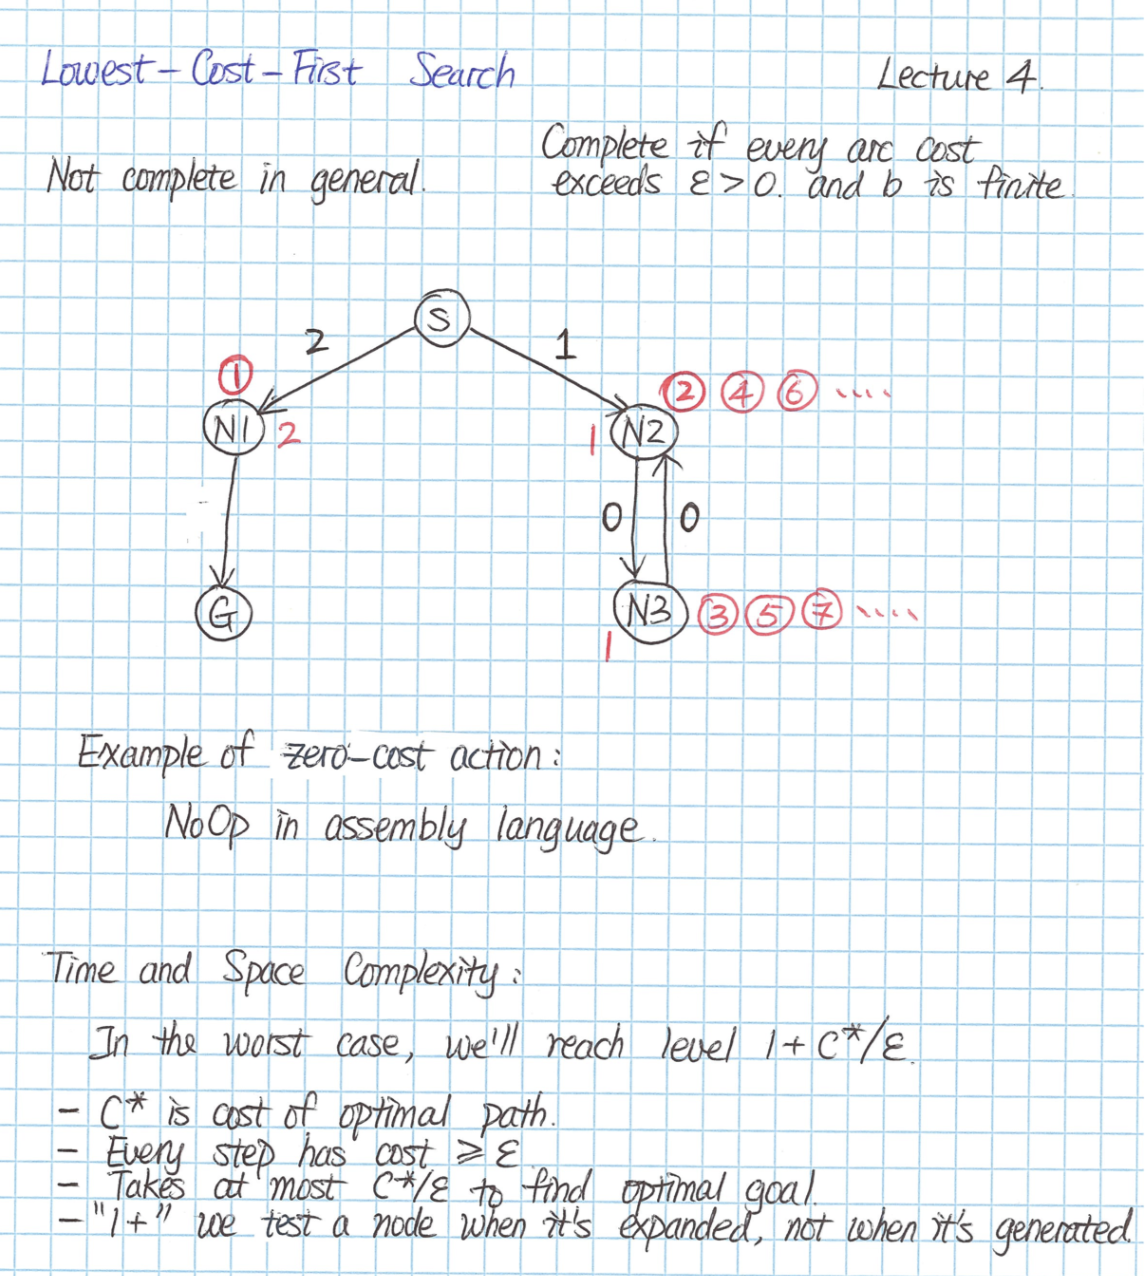 Lowest-Cost-First Search
Lecture 4.
Not complete in general.
Complete if every arc cost
exceeds ε > 0. and b is finite.
S
2
1
①
② ④ ⑥ ....
N1
2
1
N2
0
0
G
N3
③ ⑤ ⑦ ....
1
Example of zero-cost action:
NoOp in assembly language.
Time and Space Complexity:
In the worst case, we'll reach level 1 + C*/ε.
- C* is cost of optimal path.
- Every step has cost ⩾ ε
- Takes at most C*/ε to find optimal goal.
- "1+" we test a node when it's expanded, not when it's generated.